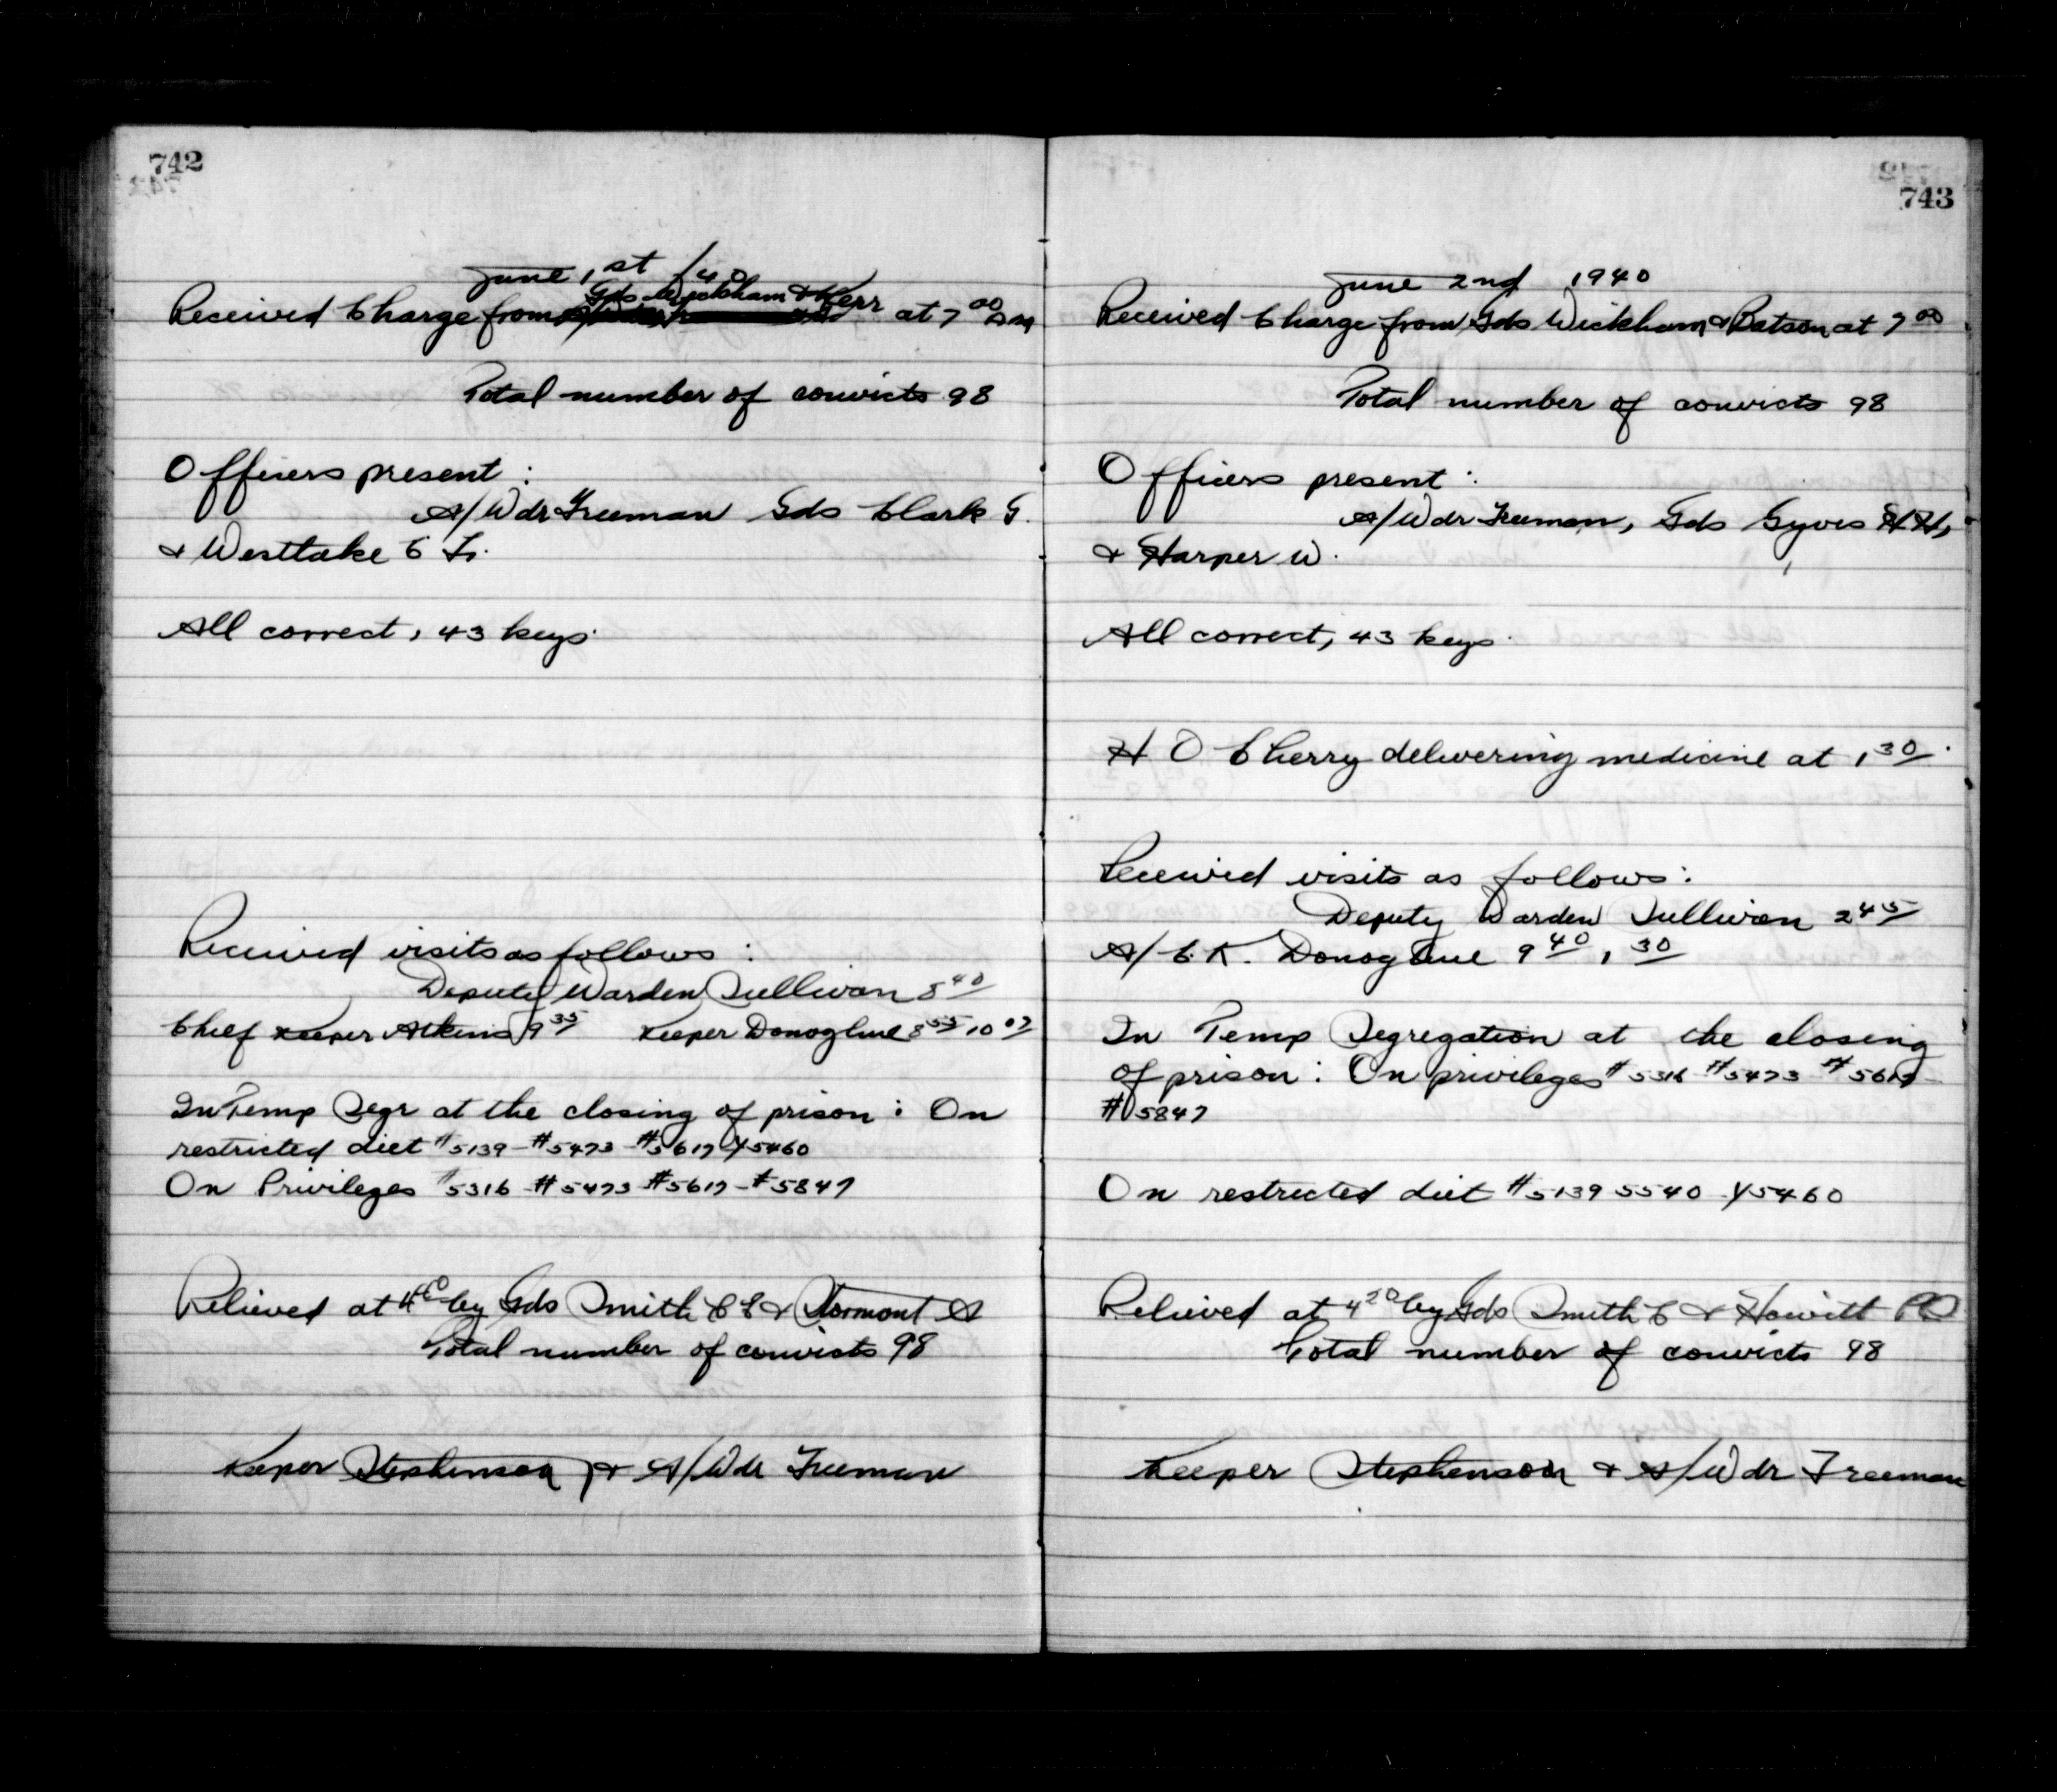 742
June 1st /40
Gds Wickham & Kerr
Received Charge from at 7 00 AM
Total number of convicts 98
Officers present :
A/Wdr Freeman Gds Clark G.
& Westlake C Fr.
All correct, 43 keys.
Received visits as follows :
Deputy Warden Sullivan 8 40
Chief Keeper Atkins 9 35 Keeper Donoghue 8 55 10 07
In Temp Segr at the closing of prison : On
restricted diet #5139 - #5473 - #5617 Y5460
On Privileges #5316 - #5473 #5617 - #5847
Relieved at by Gds Smith C E & Stormont A
Total number of convicts 98
Keeper Stephenson & A/Wdr Freeman
743
June 2nd 1940
Received Charge from Gds Wickham & Batson at 7 00
Total number of convicts 98
Officers present :
A/Wdr Freeman, Gds Gyves H H,
& Harper W.
All correct, 43 keys.
H O Cherry delivering medicine at 1 30.
Received visits as follows :
Deputy Warden Sullivan 2 45
A/C.K. Donoghue 9 40, 1 30
In Temp Segregation at the closing
of prison : On privileges #5316 #5473 #5617 -
#5847
On restricted diet #5139 5540 Y5460
Relieved at 4 20 by Gds Smith C & Howitt
Total number of convicts 98
Keeper Stephenson & A/Wdr Freeman